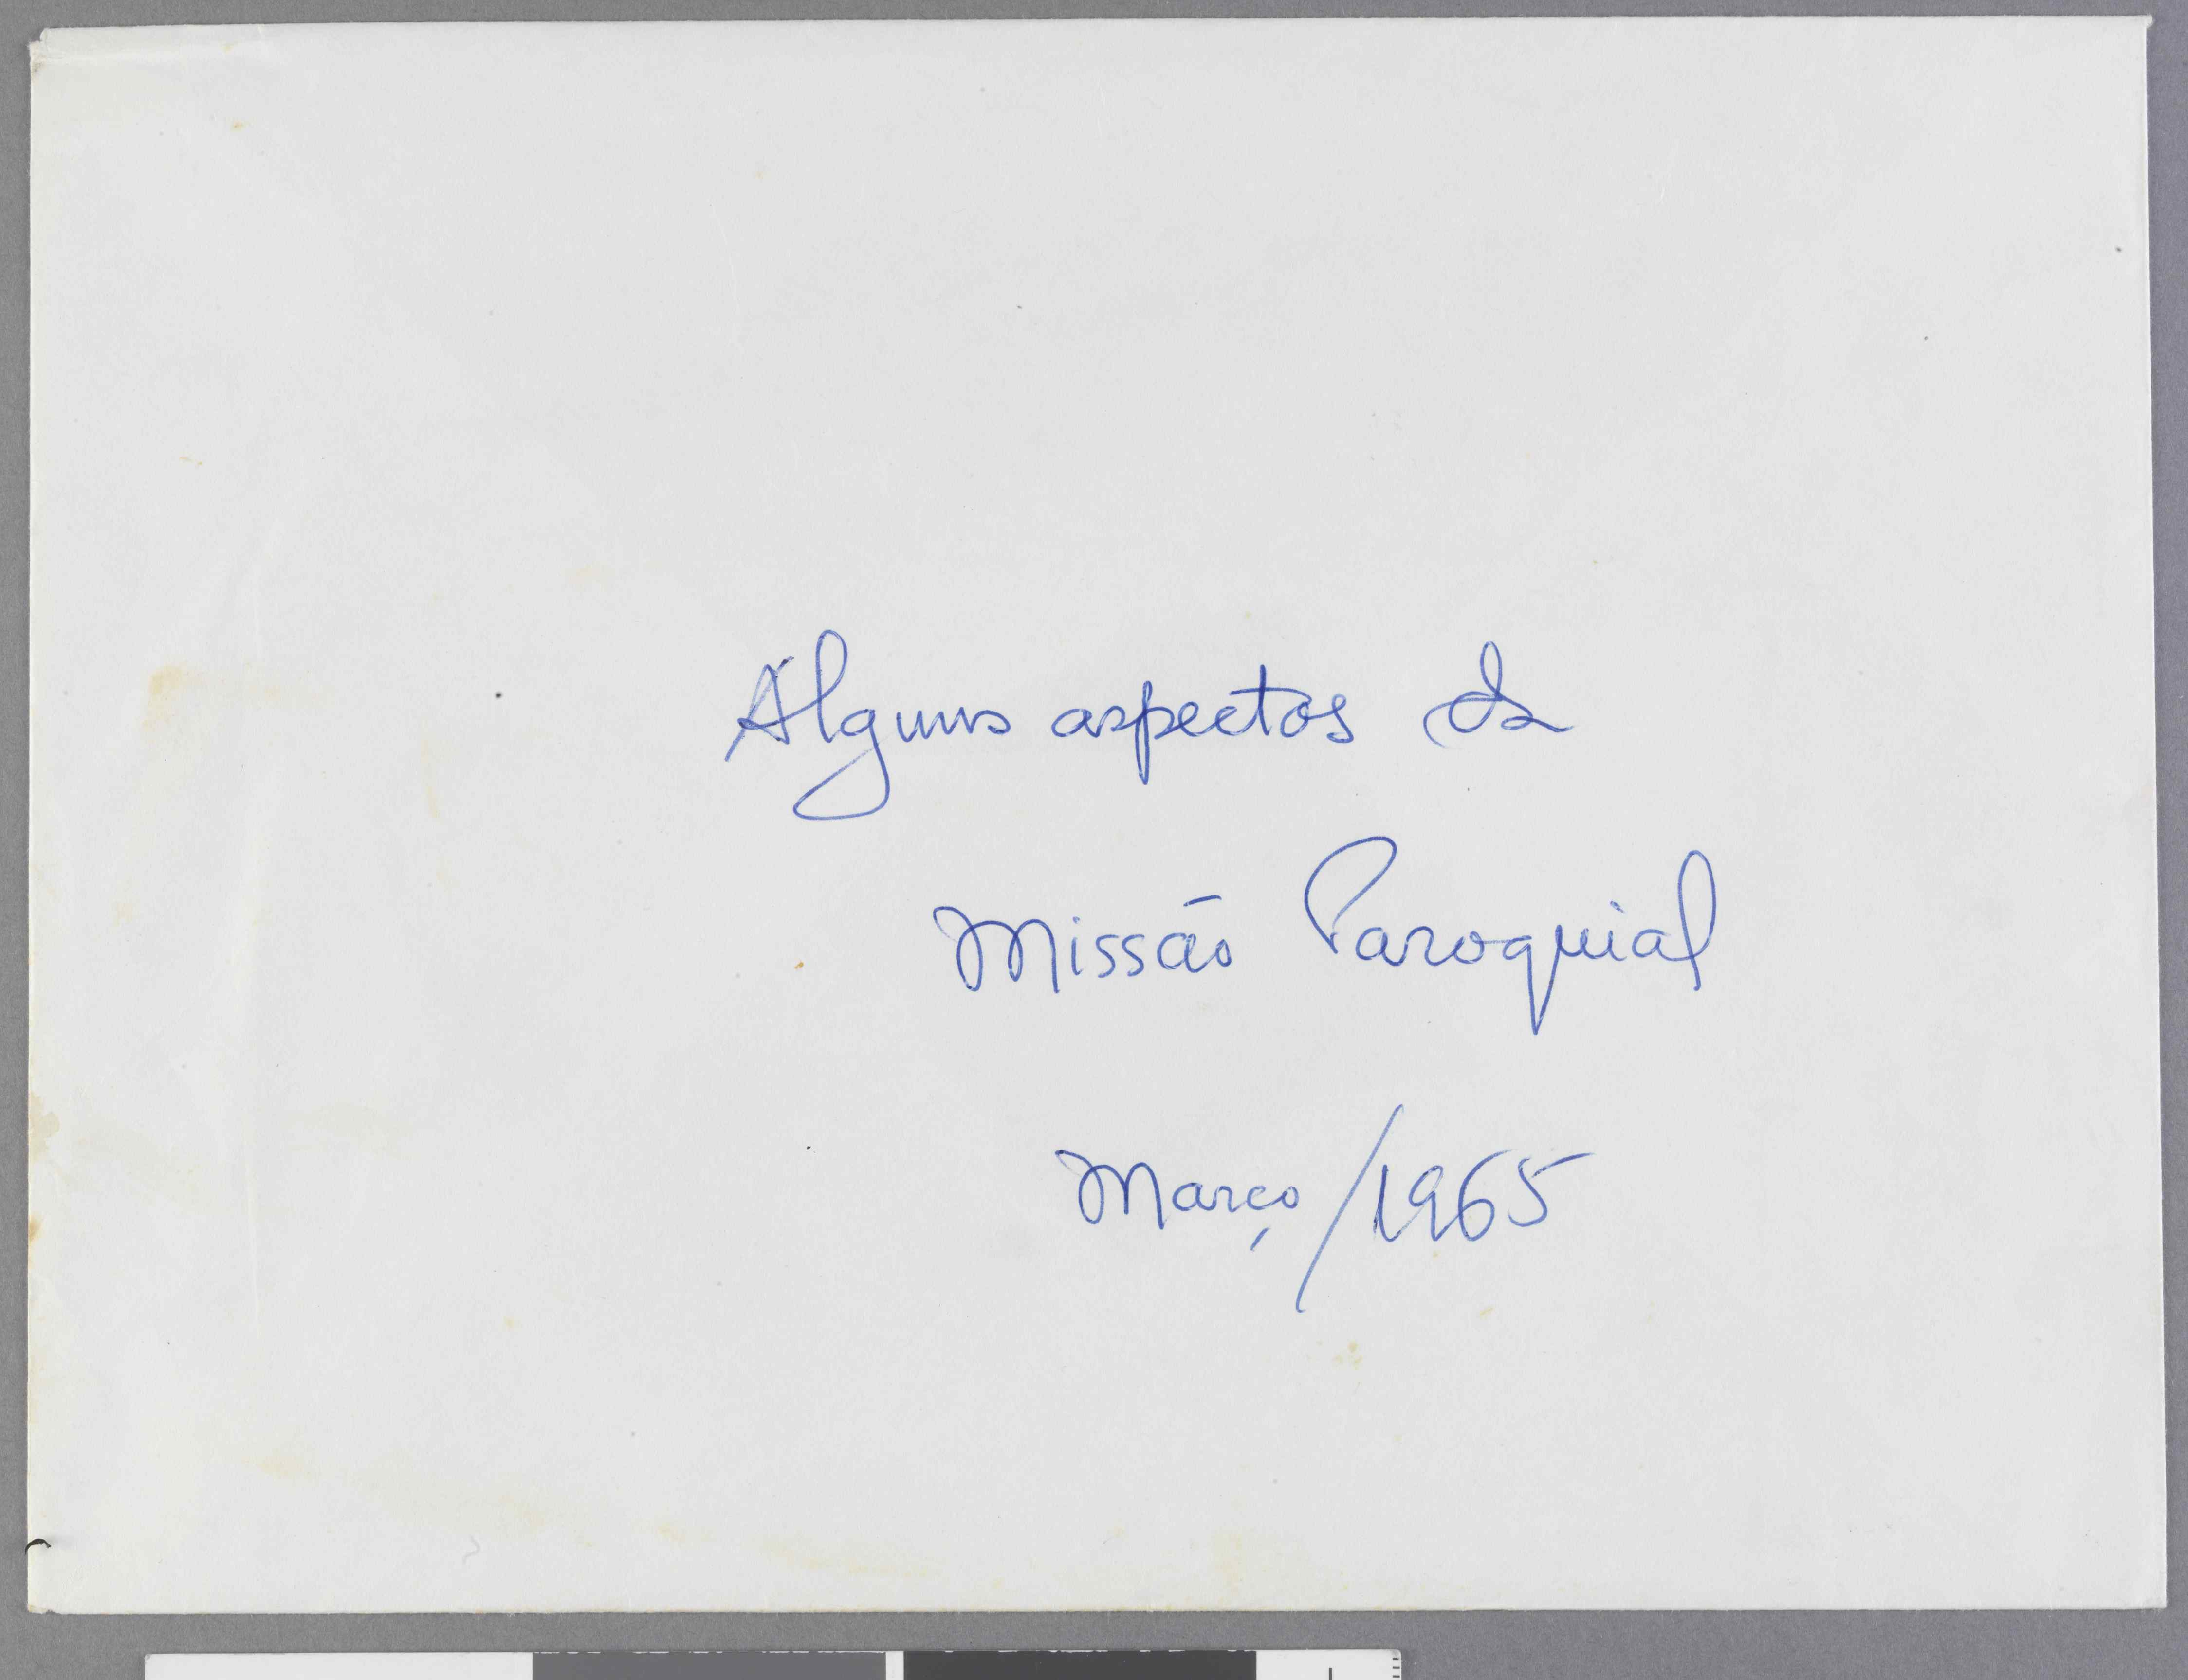 Alguns aspectos da
Missão Paroquial
Março/1965